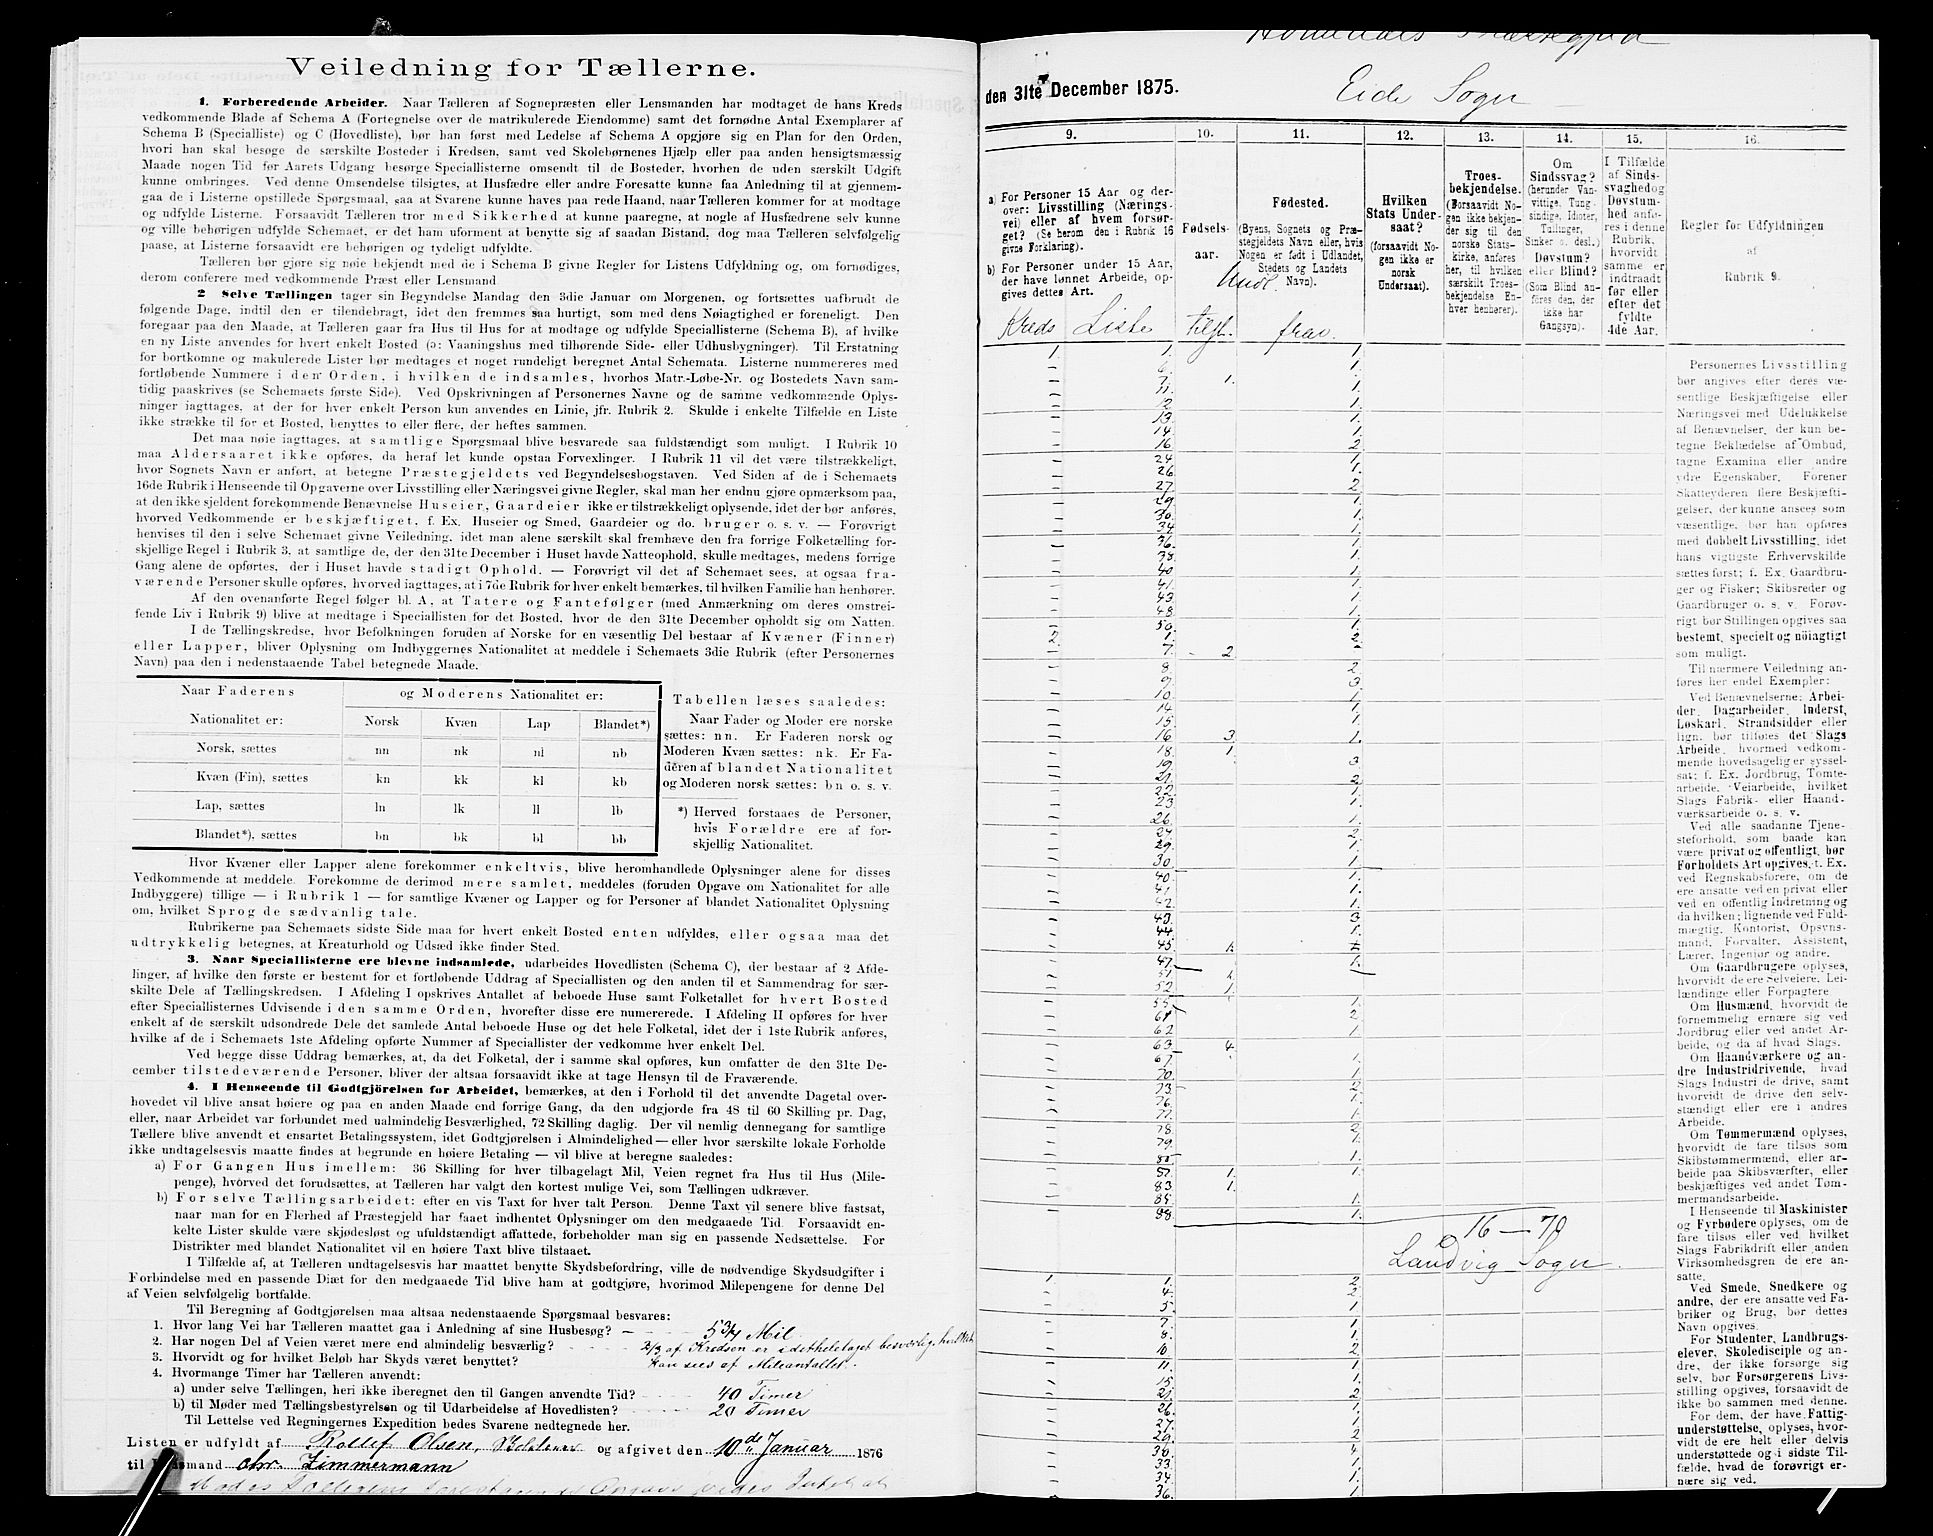 Veiledning for Tællerne.
1. Forberedende Arbeider. Naar Tælleren af Sognepræsten eller Lensmanden har modtaget de hans Kreds
vedkommende Blade af Schema A (Fortegnelse over de matrikulerede Eiendomme) samt det fornødne Antal Exemplarer af
Schema B (Specialliste) og C (Hovedliste), bør han først med Ledelse af Schema A opgjøre sig en Plan for den Orden,
hvori han skal besøge de særskilte Bosteder i Kredsen, samt ved Skolebørnenes Hjælp eller paa anden hensigtsmæssig
Maade nogen Tid før Aarets Udgang besørge Speciallisterne omsendt til de Bosteder, hvorhen de uden særskilt Udgift
kunne ombringes. Ved denne Omsendelse tilsigtes, at Husfædre eller andre Foresatte kunne faa Anledning til at gjennem-
gaa de i Listerne opstillede Spørgsmaal, saa at Svarene kunne haves paa rede Haand, naar Tælleren kommer for at modtage
og udfylde Listerne. Forsaavidt Tælleren tror med Sikkerhed at kunne paaregne, at nogle af Husfædrene selv kunne
og ville behørigen udfylde Schemaet, er det ham uforment at benytte sig af saadan Bistand, dog maa Tælleren selvfølgelig
paase, at Listerne forsaavidt ere behørigen og tydeligt udfyldte.
Tælleren bør gjøre sig nøie bekjendt med de i Schema B givne Regler for Listens Udfyldning og, om fornødiges,
derom conferere med vedkommende Præst eller Lensmand.
2 Selve Tællingen tager sin Begyndelse Mandag den 3die Januar om Morgenen, og fortsættes uafbrudt de
følgende Dage, indtil den er tilendebragt, idet den fremmes saa hurtigt, som med dens Nøiagtighed er foreneligt. Den
foregaar paa den Maade, at Tælleren gaar fra Hus til Hus for at modtage og udfylde Speciallisterne (Schema B), af hvilke
en ny Liste anvendes for hvert enkelt Bosted (ɔ: Vaaningshus med tilhørende Side- eller Udhusbygninger). Til Erstatning
for bortkomne og makulerede Lister bør medtages et noget rundeligt beregnet Antal Schemata. Listerne nummereres med
fortløbende Nummere i den Orden, i hvilken de indsamles, hvorhos Matr.-Løbe-Nr. og Bostedets Navn sam-
tidig paaskrives (se Schemaets første Side). Ved Opskrivningen af Personernes Navne og de samme vedkommende Oplys-
ninger iagttages, at der for hver enkelt Person kun anvendes en Linie, jfr. Rubrik 2. Skulde i enkelte Tilfælde en Liste
ikke strække til for et Bosted, benyttes to eller flere, der heftes sammen.
Det maa nøie iagttages, at samtlige Spørgsmaal blive besvarede saa fuldstændigt som muligt. I Rubrik 10
maa Aldersaaret ikke opføres, da heraf let kunde opstaa Forvexlinger. I Rubrik 11 vil det være tilstrækkeligt,
hvor Sognets Navn er anført, at betegne Præstegjeldets ved Begyndelsesbogstaven. Ved Siden af de i Schemaets
16de Rubrik i Henseende til Opgaverne over Livsstilling eller Næringsvei givne Regler, skal man her endnu gjøre opmærksom paa,
at den ikke sjeldent forekommende Benævnelse Huseier, Gaardeier ikke er tilstrækkeligt oplysende, idet der bør anføres,
hvorved Vedkommende er beskjæftiget, f. Ex. Huseier og Smed, Gaardeier og do. bruger o. s. v. — Forøvrigt
henvises til den i selve Schemaet givne Veiledning, idet man alene særskilt skal fremhæve den fra forrige Folketælling for-
skjellige Regel i Rubrik 3, at samtlige de, der den 31te December i Huset havde Natteophold, skulle medtages, medens forrige
Gang alene de opførtes, der i Huset havde stadigt Ophold. — Forøvrigt vil det af Schemaet sees, at ogsaa fra-
værende Personer skulle opføres, hvorved iagttages, at i 7de Rubrik for hver enkelt bemærkes, til hvilken Familie han henhører.
Af den ovenanførte Regel følger bl. A, at Tatere og Fantefølger (med Anmærkning om deres omstrei-
fende Liv i Rubrik 9) blive at medtage i Speciallisten for det Bosted, hvor de den 31te December opholdt sig om Natten.
I de Tællingskredse, hvor Befolkningen foruden af Norske for en væsentlig Del bestaar af Kvæner (Finner)
eller Lapper, bliver Oplysning om Indbyggernes Nationalitet at meddele i Schemaets 3die Rubrik (efter Personernes
Navn) paa den i nedenstaaende Tabel betegnede Maade.
Naar Faderens Nationalitet er: og Moderens Nationalitet er:
Norsk Kvæn Lap Blandet*)
Norsk, sættes nn nk nl nb
Kvæn (Fin), sættes kn kk kl kb
Lap, sættes ln lk ll lb
Blandet*), sættes bn bk bl bb
Tabellen læses saaledes:
Naar Fader og Moder ere norske
sættes: nn. Er Faderen norsk og
Moderen Kvæn sættes: nk. Er Fa-
deren af blandet Nationalitet
og Moderen norsk sættes: bn o. s. v.
*) Herved forstaaes de Personer,
hvis Forældre ere af for-
skjellig Nationalitet.
Hvor Kvæner eller Lapper alene forekommer enkeltvis, blive heromhandlede Oplysninger alene for disses
Vedkommende at meddele. Forekomme de derimod mere samlet, meddeles (foruden Opgave om Nationalitet for alle
Indbyggere) tillige — i Rubrik 1 — for samtlige Kvæner og Lapper og for Personer af blandet Nationalitet Oplysning
om, hvilket Sprog de sædvanlig tale.
Rubrikerne paa Schemaets sidste Side maa for hvert enkelt Bosted enten udfyldes, eller ogsaa maa det
udtrykkelig betegnes, at Kreaturhold og Udsæd ikke finder Sted.
3. Naar Speciallisterne ere blevne indsamlede, udarbeides Hovedlisten (Schema C), der bestaar af 2 Afde-
linger, af hvilke den første er bestemt for et fortløbende Uddrag af Speciallisten og den anden til et Sammendrag for sær-
skilte Dele af Tællingskredsen. I Afdeling I opskrives Antallet af beboede Huse samt Folketallet for hvert Bosted
efter Speciallisternes Udvisende i den samme Orden, hvorefter disse ere numererede. I Afdeling II opføres for hver
enkelt af de særskilt udsondrede Dele det samlede Antal beboede Huse og det hele Folketal, idet der i 1ste Rubrik anføres,
hvilke af de i Schemaets 1ste Afdeling opførte Nummer af Speciallister der vedkomme hver enkelt Del.
Ved begge disse Uddrag bemærkes, at, da det Folketal, der i samme skal opføres, kun omfatter de den 31te De-
cember tilstedeværende Personer, bliver der altsaa forsaavidt ikke at tage Hensyn til de Fraværende.
4. I Henseende til Godtgjörelsen for Arbeidet, bemærkes, at den i Forhold til det anvendte Dagetal over-
hovedet vil blive ansat høiere og paa en anden Maade end forrige Gang, da den udgjorde fra 48 til 60 Skilling pr. Dag,
eller, naar Arbeidet var forbundet med ualmindelig Besværlighed, 72 Skilling daglig. Der vil nemlig dennegang for samtlige
Tællere blive anvendt et ensartet Betalingssystem, idet Godtgjørelsen i Almindelighed — eller hvor særskilte lokale Forholde
ikke undtagelsesvis maatte findes at begrunde en høiere Betaling — vil blive at beregne saaledes:
a) For Gangen Hus imellem: 36 Skilling for hver tilbagelagt Mil, Veien regnet fra Hus til Hus (Mile-
penge), hvorved det forudsættes, at Tælleren har valgt den kortest mulige Vei, som Tællingen udkræver.
b) For selve Tællingsarbeidet: efter en vis Taxt for hver talt Person. Denne Taxt vil senere blive fastsat,
naar man for en Flerhed af Præstegjeld har faaet indhentet Oplysninger om den medgaaede Tid. Forsaavidt en-
kelte Lister skulde være skjødesløst og ufuldstændigt affattede, forbeholder man sig en passende Nedsættelse. For
Distrikter med blandet Nationalitet vil en høiere Taxt blive tilstaaet.
I Tilfælde af, at Tælleren undtagelsesvis har maattet benytte Skydsbefordring, ville de nødvendige Skydsudgifter i
Forbindelse med en passende Diæt for den medgaaede Tid blive ham at godtgjøre, hvorimod Milepengene for denne Del
af Veien selvfølgelig bortfalde.
Til Beregning af Godtgjørelsen maa altsaa nedenstaaende Spørgsmaal besvares:
1. Hvor lang Vei har Tælleren maattet gaa i Anledning af sine Husbesøg? — 5 3/4 Mil.
2. Har nogen Del af Veien været mere end almindelig besværlig? 2/3 af Kredsen er i det hele taget besværlig, hvilket
3. Hvorvidt og for hvilket Beløb har Skyds været benyttet? kan sees af Mileantallet.
4. Hvormange Timer har Tælleren anvendt:
a) under selve Tællingen, heri ikke iberegnet den til Gangen anvendte Tid? 40 Timer
b) til Møder med Tællingsbestyrelsen og til Udarbeidelse af Hovedlisten? 20 Timer
Til Lettelse ved Regningernes Expedition bedes Svarene nedtegnede her.
Listen er udfyldt af Rollef Olsen, og afgivet den 10de Januar 1876
til Lensmand Chr. Zimmermann
den 31te December 1875. Eide Sogn
9. 10. 11. 12. 13. 14. 15. 16.
a) For Personer 15 Aar og der-
over: Livsstilling (Nærings-
vei) eller af hvem forsør-
get? (Se herom den i Rubrik 16
givne Forklaring).
b) For Personer under 15 Aar,
der have lønnet Arbeide, op-
gives dettes Art.
Fødsels-
aar.
Fødested.
(Byens, Sognets og Præ-
stegjeldets Navn eller, hvis
Nogen er født i Udlandet,
Stedets og Landets
Navn).
Hvilken
Stats Under-
saat?
(forsaavidt No-
gen ikke er
norsk
Undersaat).
Troes-
bekjendelse.
(Forsaavidt No-
gen ikke bekjen-
der sig til den
norske Stats-
kirke, anføres
her, til hvilken
særskilt Troes-
bekjendelse En-
hver henhører).
Om
Sindssvag?
(herunder Van-
vittige, Tung-
sindige, Idioter,
Tullinger,
Sinker o. desl.)
Døvstum?
eller Blind?
(Som Blind an-
føres den, der
ikke har
Gangsyn).
I Tilfælde
af Sinds-
svaghed og
Døvstum-
hed anfø-
res i denne
Rubrik,
hvorvidt
samme er
indtraadt
før eller
efter det
fyldte
4de Aar.
Regler for Udfyldningen
af
Rubrik 9.
Kreds Liste tilfl. frav.
1. 1. 1.
6. 1.
7. 1. 1.
11. 1.
12 1.
13. 1.
14. 1.
16 2
24 1.
26. 1.
27. 2
29. 1.
30. 1.
34 1.
36. 1.
38. 1.
40 1.
41. 1.
43. 1.
48. 1.
50. 1.
2. 1. 2.
7. 2. -
8. 2
9. 3
10. 1.
14 1.
15. 1.
16 3. 1.
18. 1.
19. 3
21. 2
22. 1.
23 1.
26. 1.
27. 2
29. 1.
30. 1.
40. 1.
41. 1.
42. 1.
43. 3
44. 1.
45. 1.
47. 1.
51.
52. 1.
55. 1.
61 2
62 1.
63. 4.
67. 1.
70. 1.
73. 2
76. 1.
77. 1.
78. 2
79. 1.
80.
81. 1. 1.
83 1.
85. 1.
88. 1.
16 — 70
Landvig Sogn.
1 1. 2
4. 2
5. 1
7. 1.
8. 1.
10 2
11. 1.
15 1.
21. 2
26. 1.
27. 1.
29. 2
30. 4
33. 1.
34. 1.
36. 1.
Personernes Livsstilling
bør angives efter deres væ-
sentlige Beskjæftigelse eller
Næringsvei med Udelukkelse
af Benævnelser, der kun be-
tegne Beklædelse af Ombud,
tagne Examina eller andre
ydre Egenskaber. Forener
Skatteyderen flere Beskjæfti-
gelser, der kunne ansees som
væsentlige, bør han opføres
med dobbelt Livsstilling, idet
hans vigtigste Erhvervskilde
sættes først; f. Ex. Gaardbru-
ger og Fisker; Skibsreder og
Gaardbruger o. s. v. Forøv-
rigt bør Stillingen opgives saa
bestemt, specielt og nöiagtigt
som muligt.
Til nærmere Veiledning an-
føres her endel Exempler:
Ved Benævnelserne: Arbei-
der, Dagarbeider, Inderst,
Løskarl, Strandsidder eller
lign. bør tilføies det Slags
Arbeide, hvormed vedkom-
mende hovedsagelig er syssel-
sat; f. Ex. Jordbrug, Tomte-
arbeide, Veiarbeide, hvilket
Slags Fabrik- eller Haand-
værksarbeide o. s. v.
Ved alle saadanne Tjene-
steforhold, som baade kan
være privat og offentligt, bør
Forholdets Art opgives, t. Ex.
ved Regnskabsførere, om de
ere ansatte ved en privat eller
ved en offentlig Indretning og
da hvilken; lignende ved Fuld-
mægtig, Kontorist, Opsyns-
mand, Forvalter, Assistent,
Lærer, Ingeniør og andre.
Om Gaardbrugere oplyses,
hvorvidt de ere Selveiere, Lei-
lændinge eller Forpagtere
Om Husmænd, hvorvidt de
fornemmelig ernære sig ved
Jordbrug eller ved andet Ar-
beide, og da af hvad Slags.
Om Haandværkere og an-
dre Industridrivende, hvad
Slags Industri de drive, samt
hvorvidt de drive den selv-
stændigt eller ere i andres
Arbeide.
Om Tømmermænd oplyses,
hvorvidt de fare tilsøs som
Skibstømmermænd, eller ar-
beide paa Skibsværfter, eller
beskjæftiges ved andet Tøm-
mermandsarbeide.
I Henseende til Maskinister
og Fyrbødere oplyses, om de
fare tilsøs eller ved hvilket
Slags Fabrikdrift eller anden
Virksomhedsgren de ere an-
satte.
Ved Smede, Snedkere og
andre, der ere ansatte ved Fa-
briker og Brug, bør dettes
Navn opgives.
For Studenter, Landbrugs-
elever, Skoledisciple og an-
dre, der ikke forsørge sig
selv, bør Forsørgerens Livs-
stilling opgives, forsaavidt de
ikke bo sammen med denne.
For dem, der have Fattig-
understøttelse, oplyses, hvor-
vidt de ere helt eller delvis
understøttede og i sidste Til-
fælde, hvad de forøvrigt er-
nære sig ved.